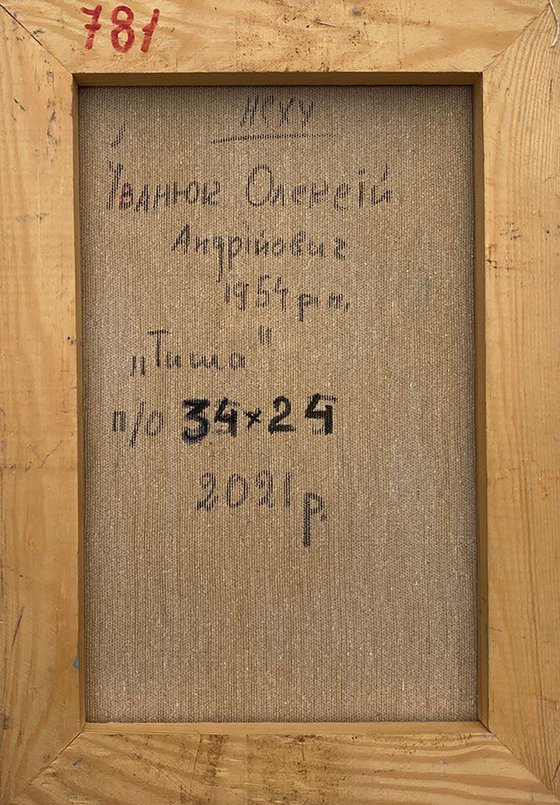 781
НСХУ
Іванюк Олексій
Андрійович
1954 р.н.
„Тиша"
п/о 34×24
2021 р.